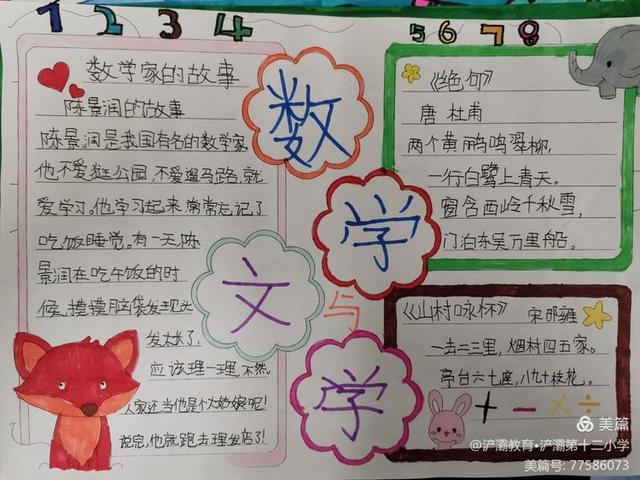 1 2 3 4
5 6 7 8
数学家的故事
陈景润的故事
陈景润是我国有名的数学家
他不爱逛公园，不爱遛马路，就
爱学习。他学习起来常常忘记了
吃饭睡觉。有一天，陈
景润在吃午饭的时
候，摸摸脑袋发现头
发太长了，
应该理一理，不然，
人家还当他是个大姑娘呢！
说完，他就跑去理发店了！
数
学
文
与
学
《绝句》
唐 杜甫
两个黄鹂鸣翠柳，
一行白鹭上青天。
窗含西岭千秋雪，
门泊东吴万里船。
《山村咏怀》 宋 邵雍
一去二三里，烟村四五家。
亭台六七座，八九十枝花。
+ - × ÷
美篇
@浐灞教育·浐灞第十二小学
美篇号: 77586073